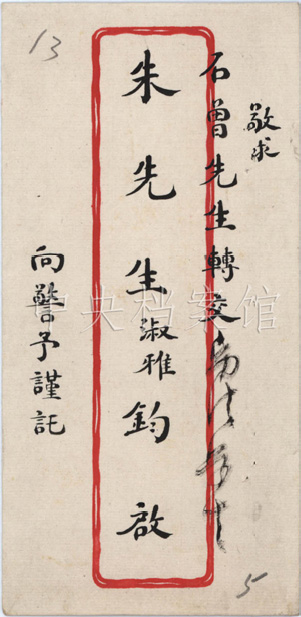 13
敬求
石曾先生轉交
朱先生淑雅鈞啟
向警予謹託
5
中央档案馆